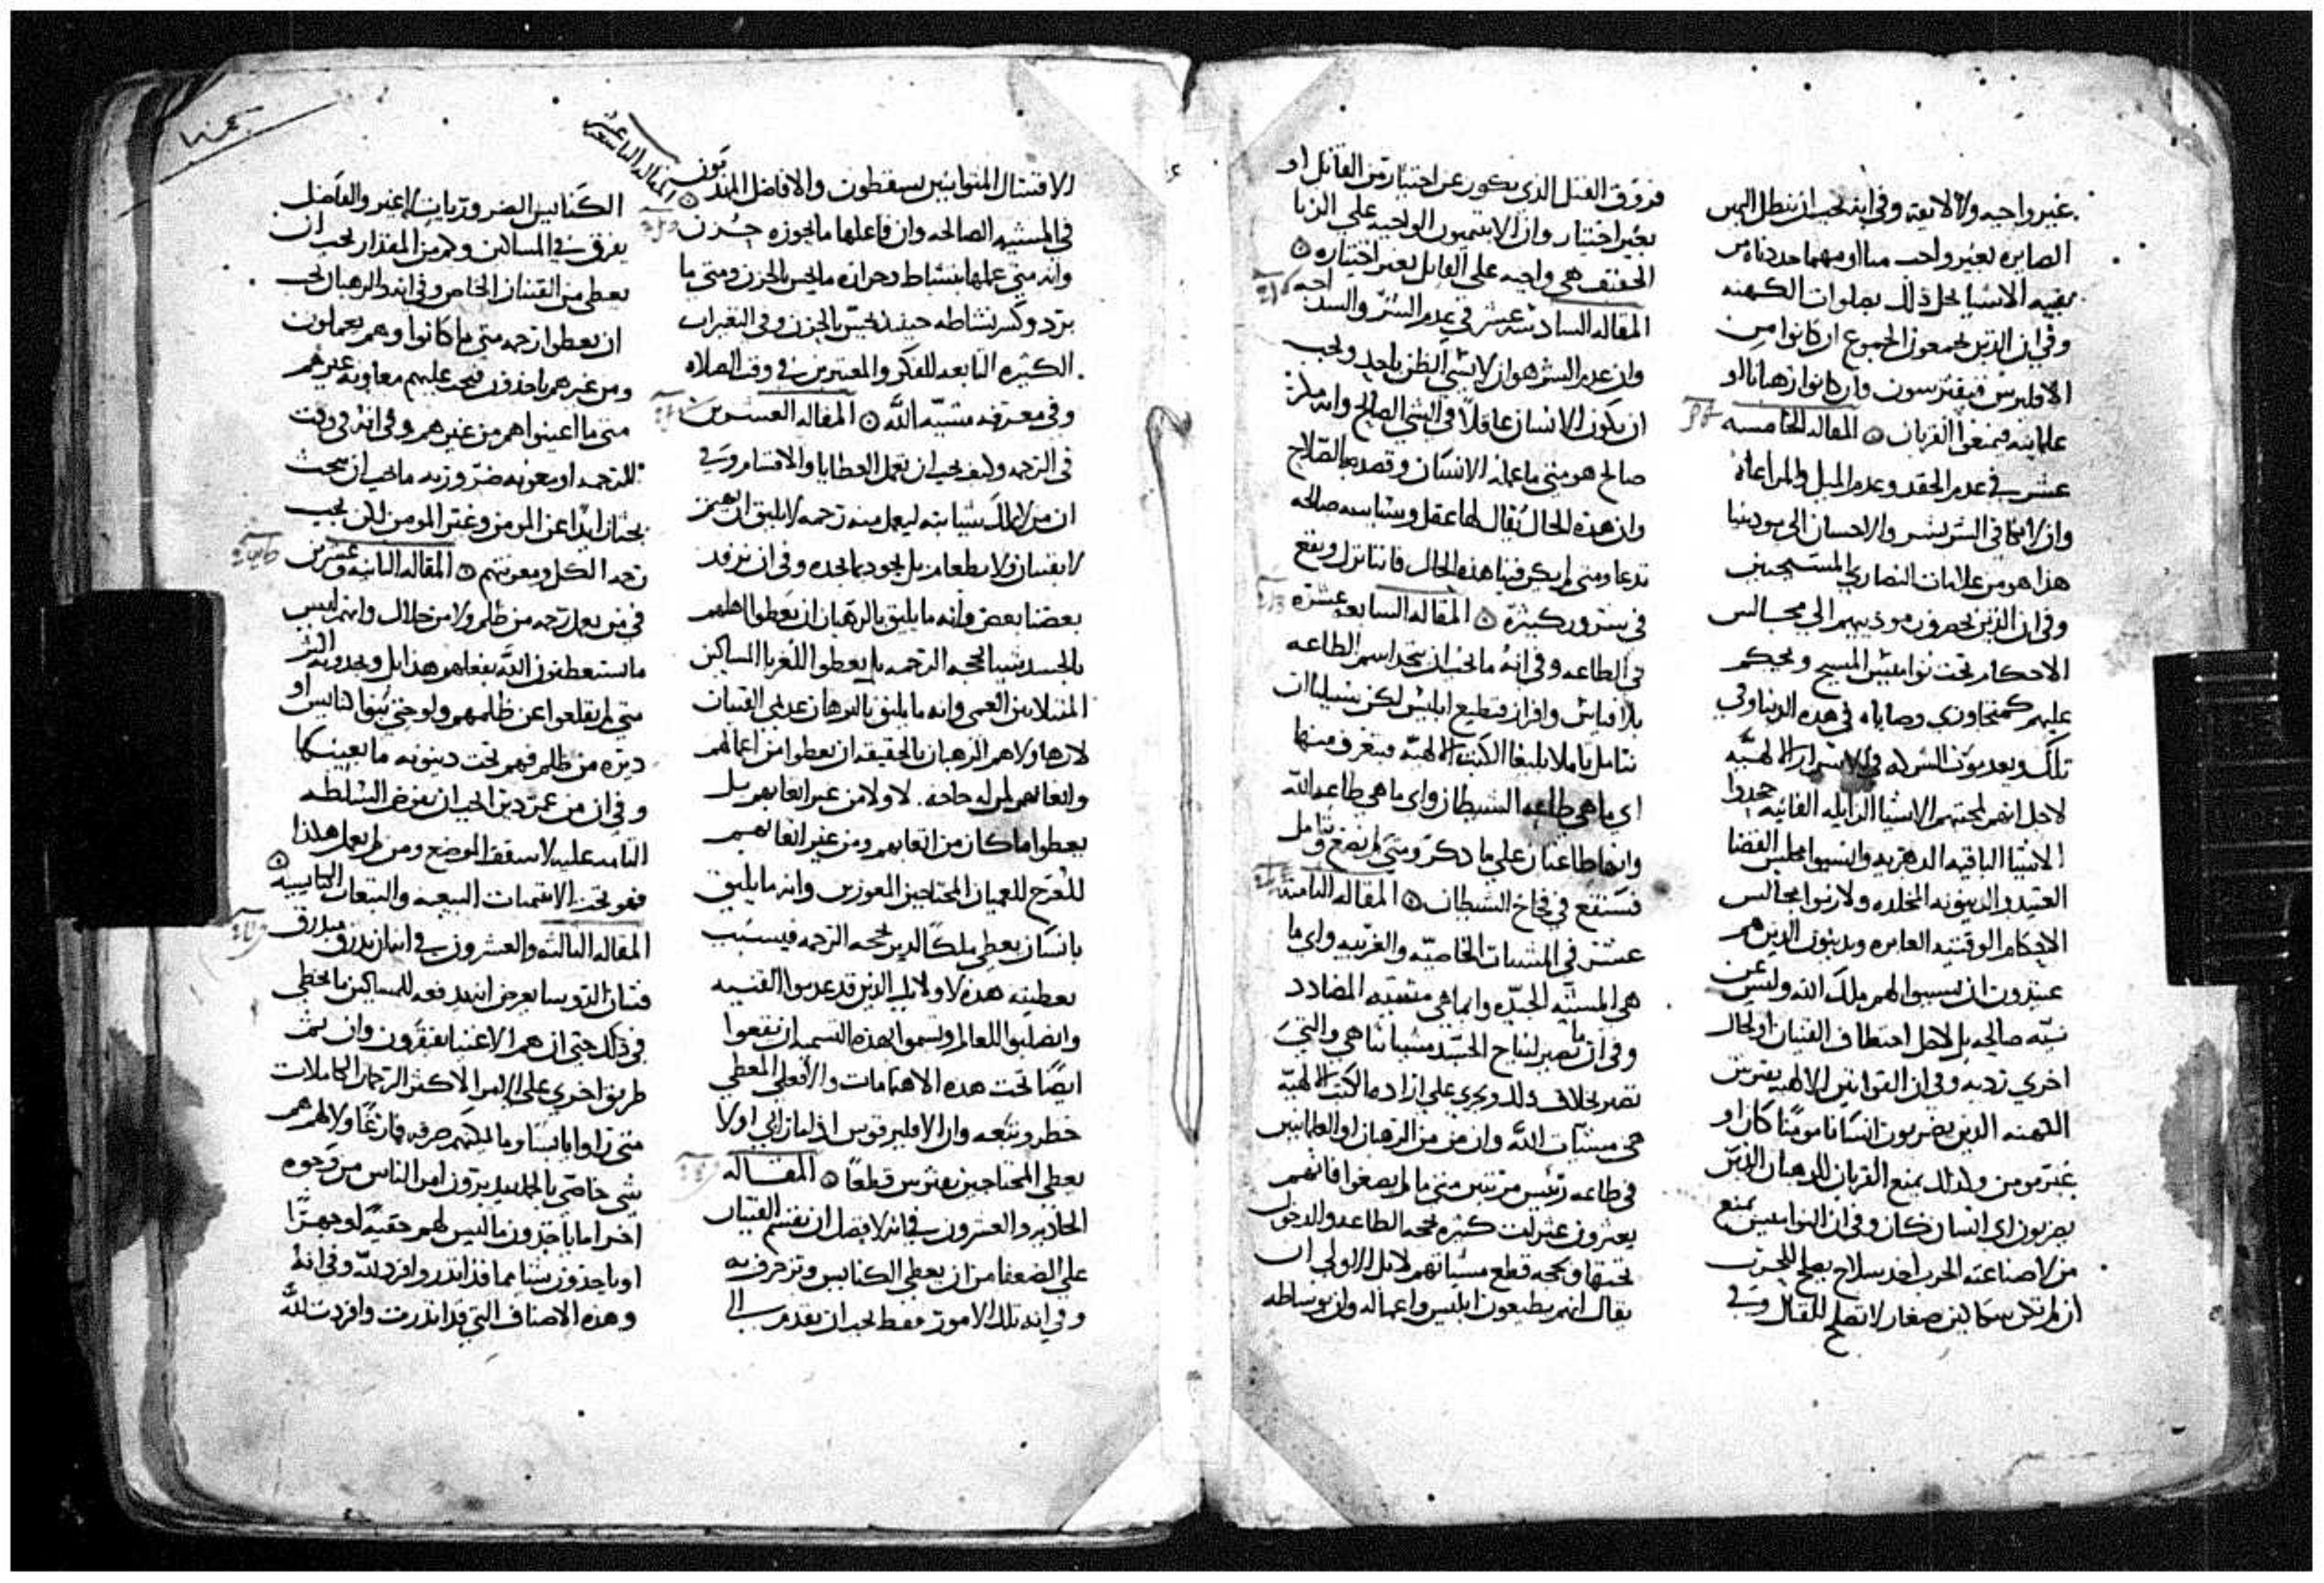 غير واجبه ولا لايقه وفي انه يجب ان تبطل اليمين
الصايره بغير واجب منا او مهما حددناه من
بقيه الاشيا يحل ذلك بصلوات الكهنه
وفي ان الذين يجمعون الجموع ان كانوا من
الاقليرس فيفترسون وان كانوا رهبانا او
علمانيه فيمنعوا القربان المقاله الخامسه
عشر في عدم الحقد وعدم الميل والمراعاه
وان لا نكافي الشر بشر والاحسان الي موذينا
هذا هو من علامات النصاري المسيحيين
وفي ان الذين يحضرون موذييهم الي مجالس
الاحكام تحت نواميس المسيح ويحكم
عليهم كمتجاوزي وصاياه في هذه الدنيا وفي
تلك ويعدمون الشركه في الاسرار الالهيه
لاجل انهم لمحبتهم الاشيا الزايله الفانيه جحدوا
الاشيا الباقيه الدهريه وانسيوا مجلس القضا
العتيد والدينونه المخلده ولازموا مجالس
الاحكام الوقتيه العابره ويدينون الذين هم
عتيدون ان ينسبوا لهم ملك الله وليس عن
نيه صالحه بل لاجل اختطاف القنيان او لحال
اخري رديه وفي ان القوانين الالهيه تفرس
الكهنه الذين يضربون انسانا مومنا كان او
غير مومن ولذلك يمنع القربان الرهبان الذين
يضربون اي انسان كان وفي ان النواميس تمنع
من لا صناعته الحرب اخذ سلاح يصلح للحرب
ان لم تكن سكاكين صغار لا تصلح للقتال وفي
فروق القتل الذي يكون عن اختيار من القاتل او
بغير اختيار وان الابتيميون الواجبه علي الزنا
الحقيقي هي واجبه علي القاتل بغير اختياره
المقاله السادسه عشر في عدم الشر والسداجه
وان عدم الشر هو ان لا نشي الظن باحد ويجب
ان يكون الانسان عاقلا في الشي الصالح وانه
صالح هو متي ما عمله الانسان وقصد به الصلاح
وان هذه الحال يقال لها عقل وسياسه صالحه
تدعا ومتي لم يكن فينا هذه الحال فاننا نزل ونقع
في شرور كثيره المقاله السابعه عشره
في الطاعه وفي انه ما يجب ان نتخذ اسم الطاعه
بلا قياس وافراز فنطيع ابليس لكن سبيلنا ان
نتامل تاملا بليغا الكتب الالهيه فنتعرف منها
اي ما هي طاعه الشيطان واي ما هي طاعه الله
وانها طاعتان علي ما ذكر ومتي لم نصغ ونتامل
فسنقع في فخاخ الشيطان المقاله الثامنه
عشر في المشيات الخاصيه والغريبه واي ما
هي المشيه الجيده وايما هي مشيه المضادد
وفي ان ما تصير لنياح الجسد مشيا ننا هي والتي
تصير بخلاف ذلك وتجري علي اراده الكتب الالهيه
هي مشيات الله وان من من الرهبان او العلمانيين
في طاعه رييس مرتبين متي ما لم يصغوا فانهم
يعثرون عثرات كثيره بحجه الطاعه والدخول
تحتها وبحجه قطع مشياتهم لا بل الاولي ان
يقال انهم يطيعون ابليس واعماله وان بوساطه
الاقتتال المتوانيين يسقطون والافاضل المتدربون
المقاله التاسعه عشر
في المشيه الصالحه وان فاعلها ما يجوزه حزن
وانه متي عملها بنشاط وحراره ما يحس بالحزن ومتي ما
برد وكسر نشاطه حينيذ يحس بالحزن وفي التغيرات
الكثيره التابعه للفكر والمعترين في وقت الصلاه
وفي معرفه مشيه الله المقاله العشرين
في الرحمه وكيف يجب ان نعمل العطايا والاقسام وفي
ان من لا يملك شيا بته ليعمل منه رحمه لا يليق ان يهتم
لا بقنيان ولا بطعام بل يجود بما يجده وفي ان نرفد
بعضنا بعض وانه ما يليق بالرهبان ان يعطوا اهلهم
بالجسد شيا بحجه الرحمه بل يعطوا للغربا المساكين
المبتلايين العمي وانه ما يليق بالرهبان عديمي القنيات
لا رها ولا هم الرهبان بالحقيقه ان يعطوا من اعمالهم
واتعابهم لمن له حاجه لا ولا من غير اتعابهم بل
يعطوا ما كان من اتعابهم ومن غير اتعابهم
للعرج للعميان المحتاجين المعوزين وانه ما يليق
بانسان يعطي ملكا لدير بحجه الرحمه فيسبب
بعطيته هذه لاوليك الذين قد عدموا القنيه
وانصلبوا للعالم وتسموا بهذه التسميه ان يقعوا
ايضا تحت هذه الاهتمامات والا فعلي المعطي
خطر وتبعه وان الاقليرقوس اذا لم ان ابي او لا
يعطي المحتاجين يفترس قطعا المقاله
الحاديه والعشرون في انه لافضل ان نقسم القنيان
علي الضعفا من ان يعطي الكنايس وتزخرف به
وفي انه تلك الامور فقط يجب ان يقدم الي
الكنايس الضروريات لا غير والفاضل
يفرق في المساكين وكم من المقدار يجب ان
يعطي من القنيان الخاص وفي انه الرهبان يجب
ان يعطوا رحمه متي ما كانوا وهم يعملون
ومن غيرهم ياخذون فيجب عليهم معاونه غيرهم
متي ما اعينوا هم من غيرهم وفي انه في وقت
للرحمه او معونه ضروريه ما يجب ان يبحث
بحثا زايدا عن المومن وغير المومن لكن يجب
رحمه الكل ومعونتهم المقاله الثانيه وعشرين
في من يعمل رحمه من ظلم ولا من حلال وانهم ليس
ما يستعطفون الله بفعلهم هذا بل ويجدونه اكثر
متي لم يقلعوا عن ظلمهم ولو حتي بنوا كنايس او
ديره من ظلم فهم تحت دينونه ما بعينها
وفي ان من عمر دير يجب ان يفوض السلطه
التامه عليه لاسقف الموضع ومن لم يعمل هكذا
فهو تحت الابتيميات البيعيه والتبعات الكنايسيه
المقاله الثالثه والعشرون في انه ان بدرق مبدرق
قنيان الدوبسا بعرض انه يدفعه للمساكين ما يخطي
في ذلك حتي ان هم الاغنيا يفتقرون وان ثم
طريق اخري علي الامر الاكثر الرحمات الكاملات
متي راوا اناسا وما لم يكنهم حرفه فارغا ولا لهم هم
شي خاصي بالجمله يبدرقون امر الناس من وجوه
اخر اما ياخذون ما ليس لهم خفيه او جهرا
او ياخذون شيا مما قد انذر وافرد لله وفي انه
وهذه الاصناف التي قد انذرت وافردت لله